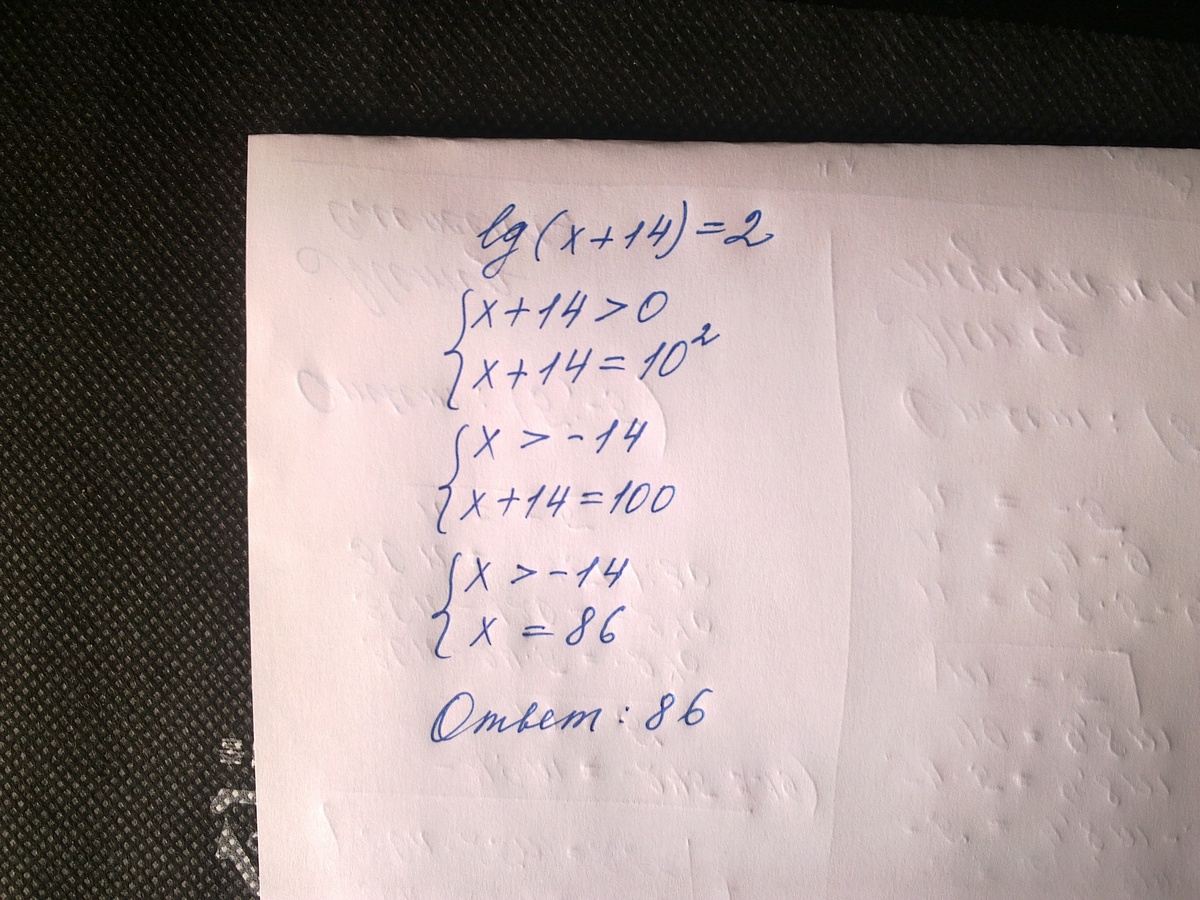 lg(x+14)=2
x+14>0
x+14=10²
x>-14
x+14=100
x>-14
x=86
Ответ: 86